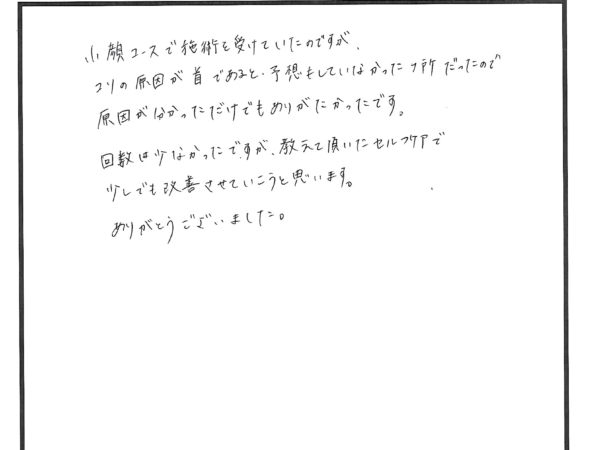 小顔コースで施術を受けていたのですが、
コリの原因が首であると、予想もしていなかったヶ所だったので
原因が分かっただけでもありがたかったです。
回数は少なかったですが、教えて頂いたセルフケアで
少しでも改善させていこうと思います。
ありがとうございました。